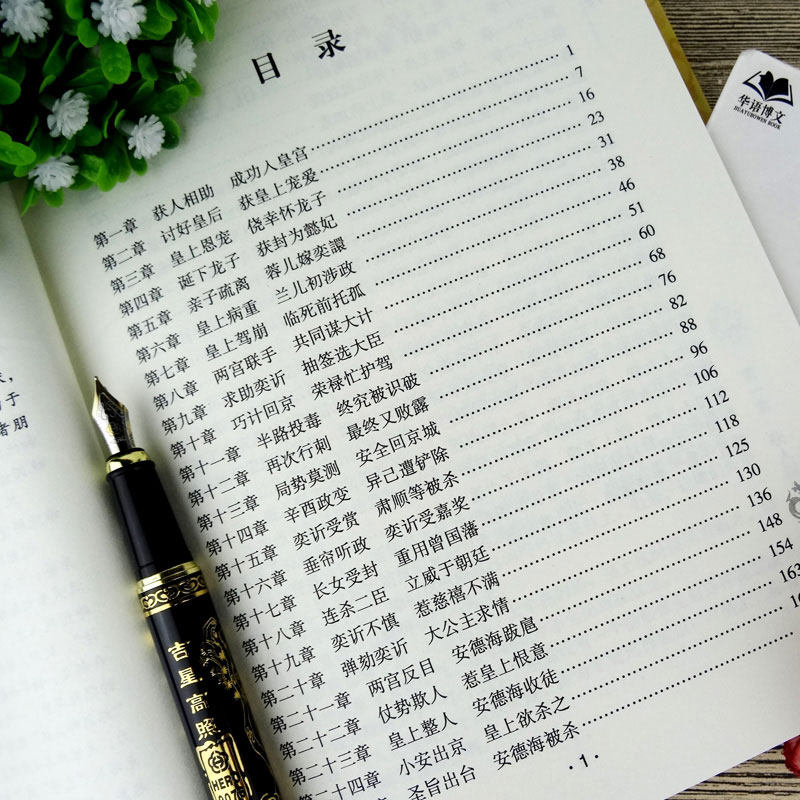 目 录
第一章 获人相助 成功人皇宫 1
第二章 讨好皇后 获皇上宠爱 7
第三章 皇上恩宠 侥幸怀龙子 16
第四章 诞下龙子 获封为懿妃 23
第五章 亲子疏离 蓉儿嫁奕譞 31
第六章 皇上病重 兰儿初涉政 38
第七章 皇上驾崩 临死前托孤 46
第八章 两宫联手 共同谋大计 51
第九章 求助奕䜣 抽签选大臣 60
第十章 巧计回京 荣禄忙护驾 68
第十一章 半路投毒 终究被识破 76
第十二章 再次行刺 最终又败露 82
第十三章 局势莫测 安全回京城 88
第十四章 辛酉政变 异己遭铲除 96
第十五章 奕䜣受赏 肃顺等被杀 106
第十六章 垂帘听政 奕䜣受嘉奖 112
第十七章 长女受封 重用曾国藩 118
第十八章 连杀二臣 立威于朝廷 125
第十九章 奕䜣不慎 惹慈禧不满 130
第二十章 弹劾奕䜣 大公主求情 136
第二十一章 两宫反目 安德海跋扈 148
第二十二章 仗势欺人 惹皇上恨意 154
第二十三章 皇上整人 安德海收徒 163
二十四章 小安出京 皇上欲杀之
章 圣旨出台 安德海被杀
·1·
华语博文
HUAYUBOWEN BOOK
吉星高照
HERO
者朋